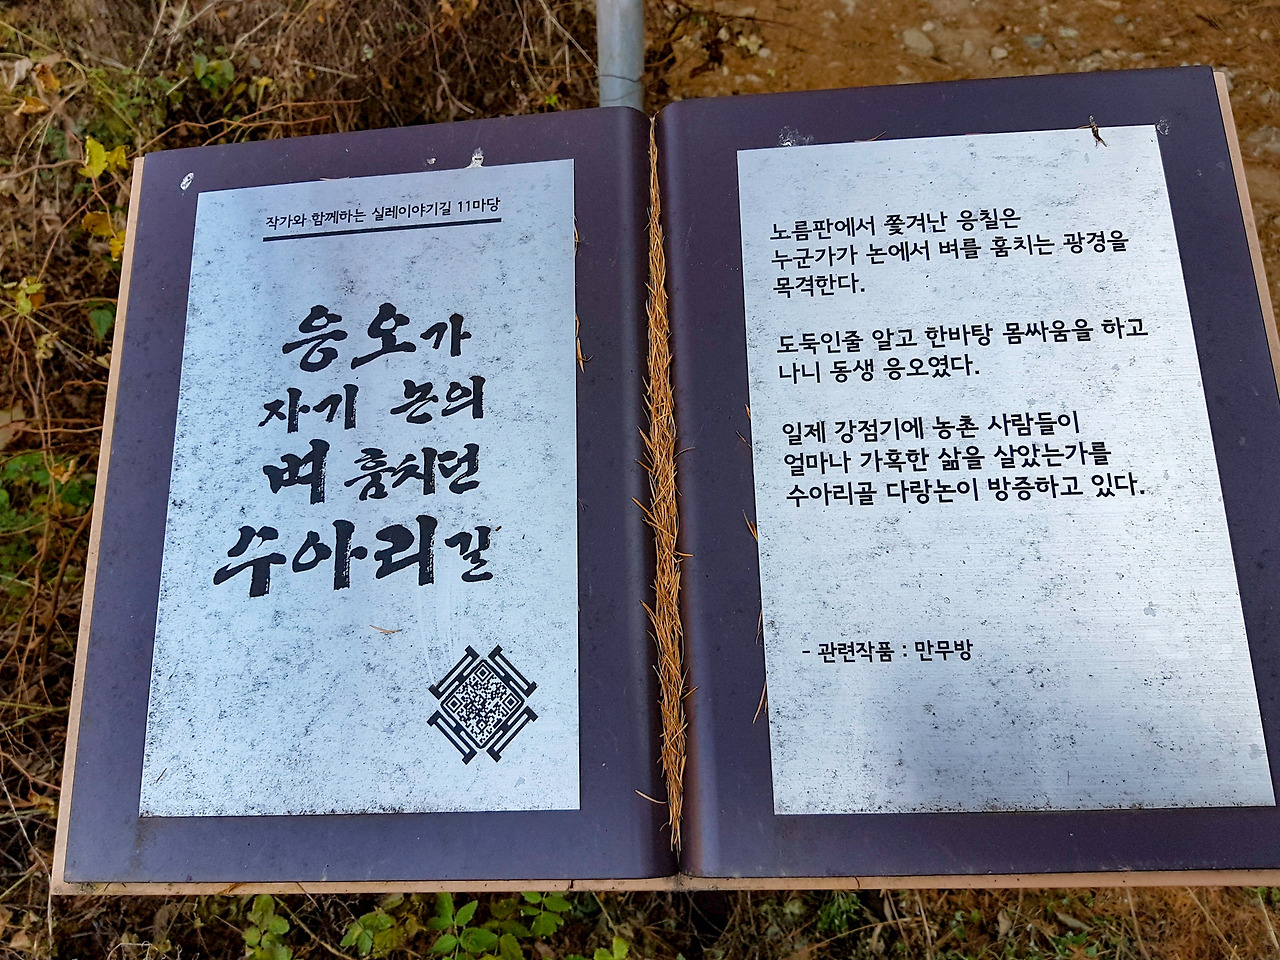 작가와 함께하는 실레이야기길 11마당
응오가
자기 논의
벼 훔치던
수아리길
노름판에서 쫓겨난 응칠은
누군가가 논에서 벼를 훔치는 광경을
목격한다.
도둑인줄 알고 한바탕 몸싸움을 하고
나니 동생 응오였다.
일제 강점기에 농촌 사람들이
얼마나 가혹한 삶을 살았는가를
수아리골 다랑논이 방증하고 있다.
- 관련작품 : 만무방